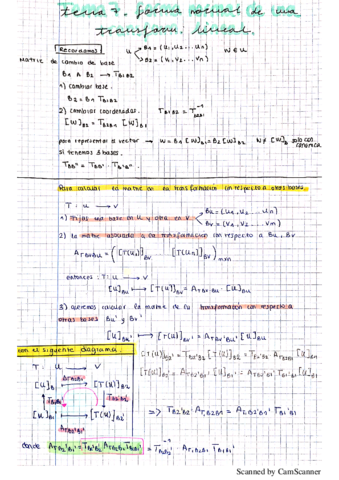 tema 7. forma normal de una
transform. lineal.
Recordamos
u
B1 = (u1, u2 ... un)
B2 = (v1, v2 ... vn)
w ∈ u
Matriz de cambio de base
B1 ∧ B2 → TB1B2
1) cambiar base.
B2 = B1 TB1B2
2) cambiar coordenadas.
TB1B2 = T⁻¹B2B1
[W]B2 = TB2B1 [W]B1
para representar el vector → W = B1[W]B1 = B2[W]B2
W ≠ [W]B solo con canonica
si tenemos 3 bases.
TBB'' = TBB' · TB'B''.
Para calcular la matriz de la transformación con respecto a otras bases.
T: u → v
1) Fijas una base en u y otra en v.
Bu = (u1, u2 ... un)
Bv = (v1, v2 ... vm)
2) la matriz asociada a la transformación con respecto a Bu, Bv
ATBvBu = ([T(u1)]Bv [T(un)]Bv)mxn
entonces : T: u → v
[u]Bu ↦ [T(u)]Bv = ATBvBu · [u]Bu
3) queremos calcular la matriz de la transformación con respecto a
otras bases Bu' y Bv'
[u]Bu' ↦ [T(u)]Bv' = ATBv'Bu' [u]Bu'
con el siguiente diagrama.
T: u → v
ATB2B1
[u]B1 → [T(u)]B2
TB1B1' TB2'B2
[u]B1' → [T(u)]B2'
ATB2'B1'
[T(u)]B2' = TB2'B2 [T(u)]B2 = TB2'B2 ATB2B1 [u]B1
[T(u)]B2' = ATB2'B1' [u]B1' = ATB2'B1' TB1'B1 [u]B1
=> TB2'B2 · ATB2B1 = ATB2'B1' TB1'B1
donde ATB2'B1' = TB2'B2 ATB2B1 TB1B1' = T⁻¹B2B2' · ATB2B1 TB1B1'
Scanned by CamScanner